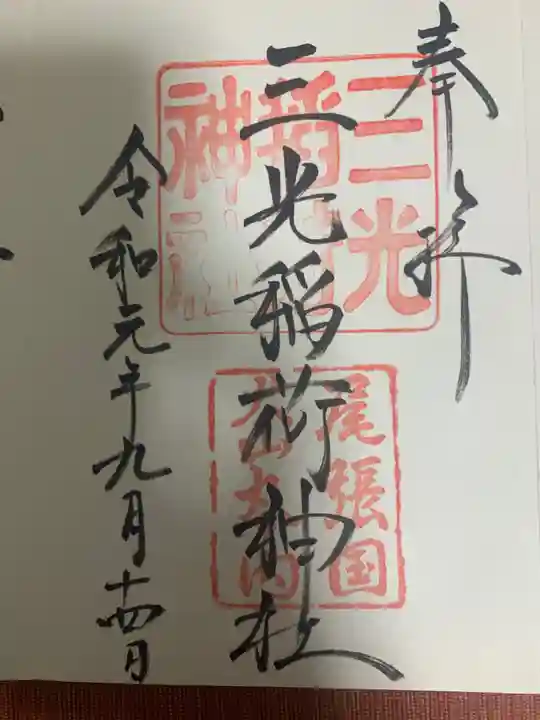 奉拝
三光稲荷神社
令和元年九月十四日
三光
稲荷
神社
尾張国
犬山城内